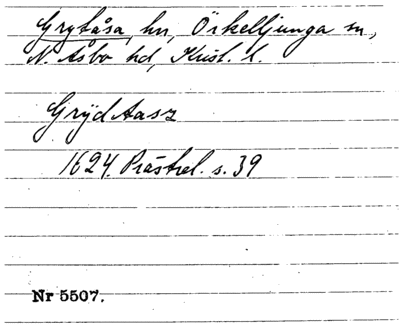 Grytåsa, hn, Örkelljunga sn,
N. Åsbo hd, Krist. l.
Grÿd Aasz
1624. Prästrel. s. 39
Nr 5507.